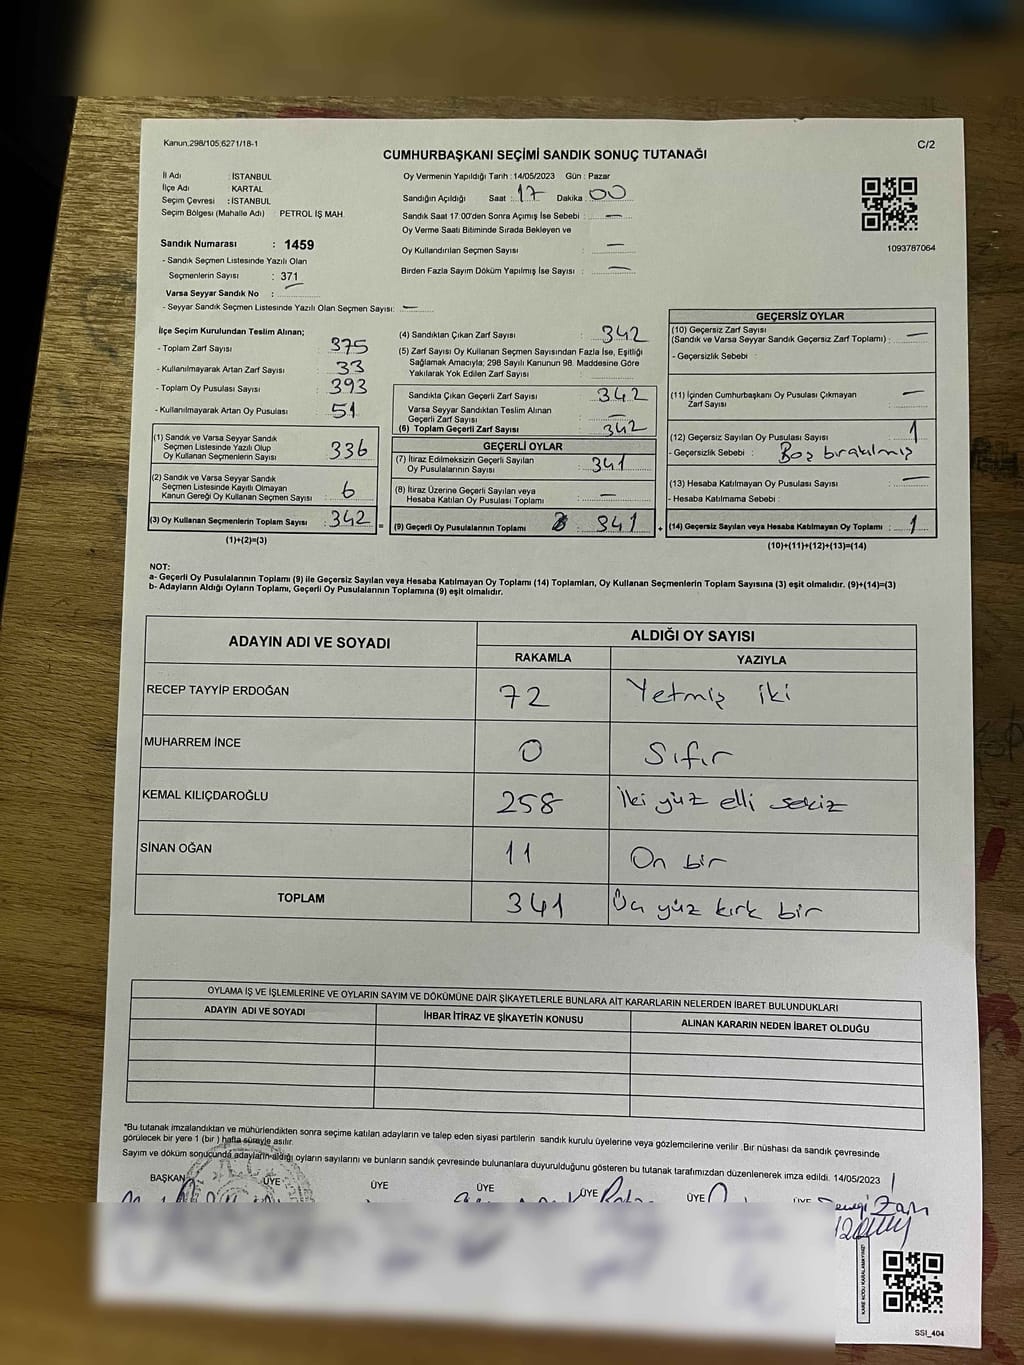 Kanun,298/105,6271/18-1
C/2
CUMHURBAŞKANI SEÇİMİ SANDIK SONUÇ TUTANAĞI
İl Adı : İSTANBUL
İlçe Adı : KARTAL
Seçim Çevresi : İSTANBUL
Seçim Bölgesi (Mahalle Adı) PETROL İŞ MAH.
Sandık Numarası : 1459
- Sandık Seçmen Listesinde Yazılı Olan
Seçmenlerin Sayısı : 371
Varsa Seyyar Sandık No :
- Seyyar Sandık Seçmen Listesinde Yazılı Olan Seçmen Sayısı: —
Oy Vermenin Yapıldığı Tarih : 14/05/2023 Gün : Pazar
Sandığın Açıldığı Saat : 17 Dakika : 00
Sandık Saat 17.00'den Sonra Açımış İse Sebebi : —
Oy Verme Saati Bitiminde Sırada Bekleyen ve
Oy Kullandırılan Seçmen Sayısı : —
Birden Fazla Sayım Döküm Yapılmış İse Sayısı : —
1093787064
İlçe Seçim Kurulundan Teslim Alınan;
- Toplam Zarf Sayısı : 375
- Kullanılmayarak Artan Zarf Sayısı : 33
- Toplam Oy Pusulası Sayısı : 393
- Kullanılmayarak Artan Oy Pusulası : 51
(1) Sandık ve Varsa Seyyar Sandık
Seçmen Listesinde Yazılı Olup
Oy Kullanan Seçmenlerin Sayısı : 336
(2) Sandık ve Varsa Seyyar Sandık
Seçmen Listesinde Kayıtlı Olmayan
Kanun Gereği Oy Kullanan Seçmen Sayısı : 6
(3) Oy Kullanan Seçmenlerin Toplam Sayısı : 342
(1)+(2)=(3)
=
(4) Sandıktan Çıkan Zarf Sayısı : 342
(5) Zarf Sayısı Oy Kullanan Seçmen Sayısından Fazla İse, Eşitliği
Sağlamak Amacıyla; 298 Sayılı Kanunun 98. Maddesine Göre
Yakılarak Yok Edilen Zarf Sayısı :
Sandıkta Çıkan Geçerli Zarf Sayısı : 342
Varsa Seyyar Sandıktan Teslim Alınan
Geçerli Zarf Sayısı : —
(6) Toplam Geçerli Zarf Sayısı : 342
GEÇERLİ OYLAR
(7) İtiraz Edilmeksizin Geçerli Sayılan
Oy Pusulalarının Sayısı : 341
(8) İtiraz Üzerine Geçerli Sayılan veya
Hesaba Katılan Oy Pusulası Toplamı : —
(9) Geçerli Oy Pusulalarının Toplamı 341
+
GEÇERSİZ OYLAR
(10) Geçersiz Zarf Sayısı
(Sandık ve Varsa Seyyar Sandık Geçersiz Zarf Toplamı) : —
- Geçersizlik Sebebi :
(11) İçinden Cumhurbaşkanı Oy Pusulası Çıkmayan
Zarf Sayısı : —
(12) Geçersiz Sayılan Oy Pusulası Sayısı : 1
- Geçersizlik Sebebi : Boş bırakılmış
(13) Hesaba Katılmayan Oy Pusulası Sayısı : —
- Hesaba Katılmama Sebebi :
(14) Geçersiz Sayılan veya Hesaba Katılmayan Oy Toplamı : 1
(10)+(11)+(12)+(13)=(14)
NOT:
a- Geçerli Oy Pusulalarının Toplamı (9) ile Geçersiz Sayılan veya Hesaba Katılmayan Oy Toplamı (14) Toplamları, Oy Kullanan Seçmenlerin Toplam Sayısına (3) eşit olmalıdır. (9)+(14)=(3)
b- Adayların Aldığı Oyların Toplamı, Geçerli Oy Pusulalarının Toplamına (9) eşit olmalıdır.
ADAYIN ADI VE SOYADI
ALDIĞI OY SAYISI
RAKAMLA YAZIYLA
RECEP TAYYİP ERDOĞAN 72 Yetmiş iki
MUHARREM İNCE 0 Sıfır
KEMAL KILIÇDAROĞLU 258 İki yüz elli sekiz
SİNAN OĞAN 11 On bir
TOPLAM 341 Üç yüz kırk bir
OYLAMA İŞ VE İŞLEMLERİNE VE OYLARIN SAYIM VE DÖKÜMÜNE DAİR ŞİKAYETLERLE BUNLARA AİT KARARLARIN NELERDEN İBARET BULUNDUKLARI
ADAYIN ADI VE SOYADI İHBAR İTİRAZ VE ŞİKAYETİN KONUSU ALINAN KARARIN NEDEN İBARET OLDUĞU
*Bu tutanak imzalandıktan ve mühürlendikten sonra seçime katılan adayların ve talep eden siyasi partilerin sandık kurulu üyelerine veya gözlemcilerine verilir. Bir nüshası da sandık çevresinde
görülecek bir yere 1 (bir ) hafta süreyle asılır.
Sayım ve döküm sonuçunda adayların aldığı oyların sayılarını ve bunların sandık çevresinde bulunanlara duyurulduğunu gösteren bu tutanak tarafımızdan düzenlenerek imza edildi. 14/05/2023
BAŞKAN ÜYE ÜYE ÜYE ÜYE ÜYE ÜYE
KARE KODU KARALAMAYINIZ!
SSI_404